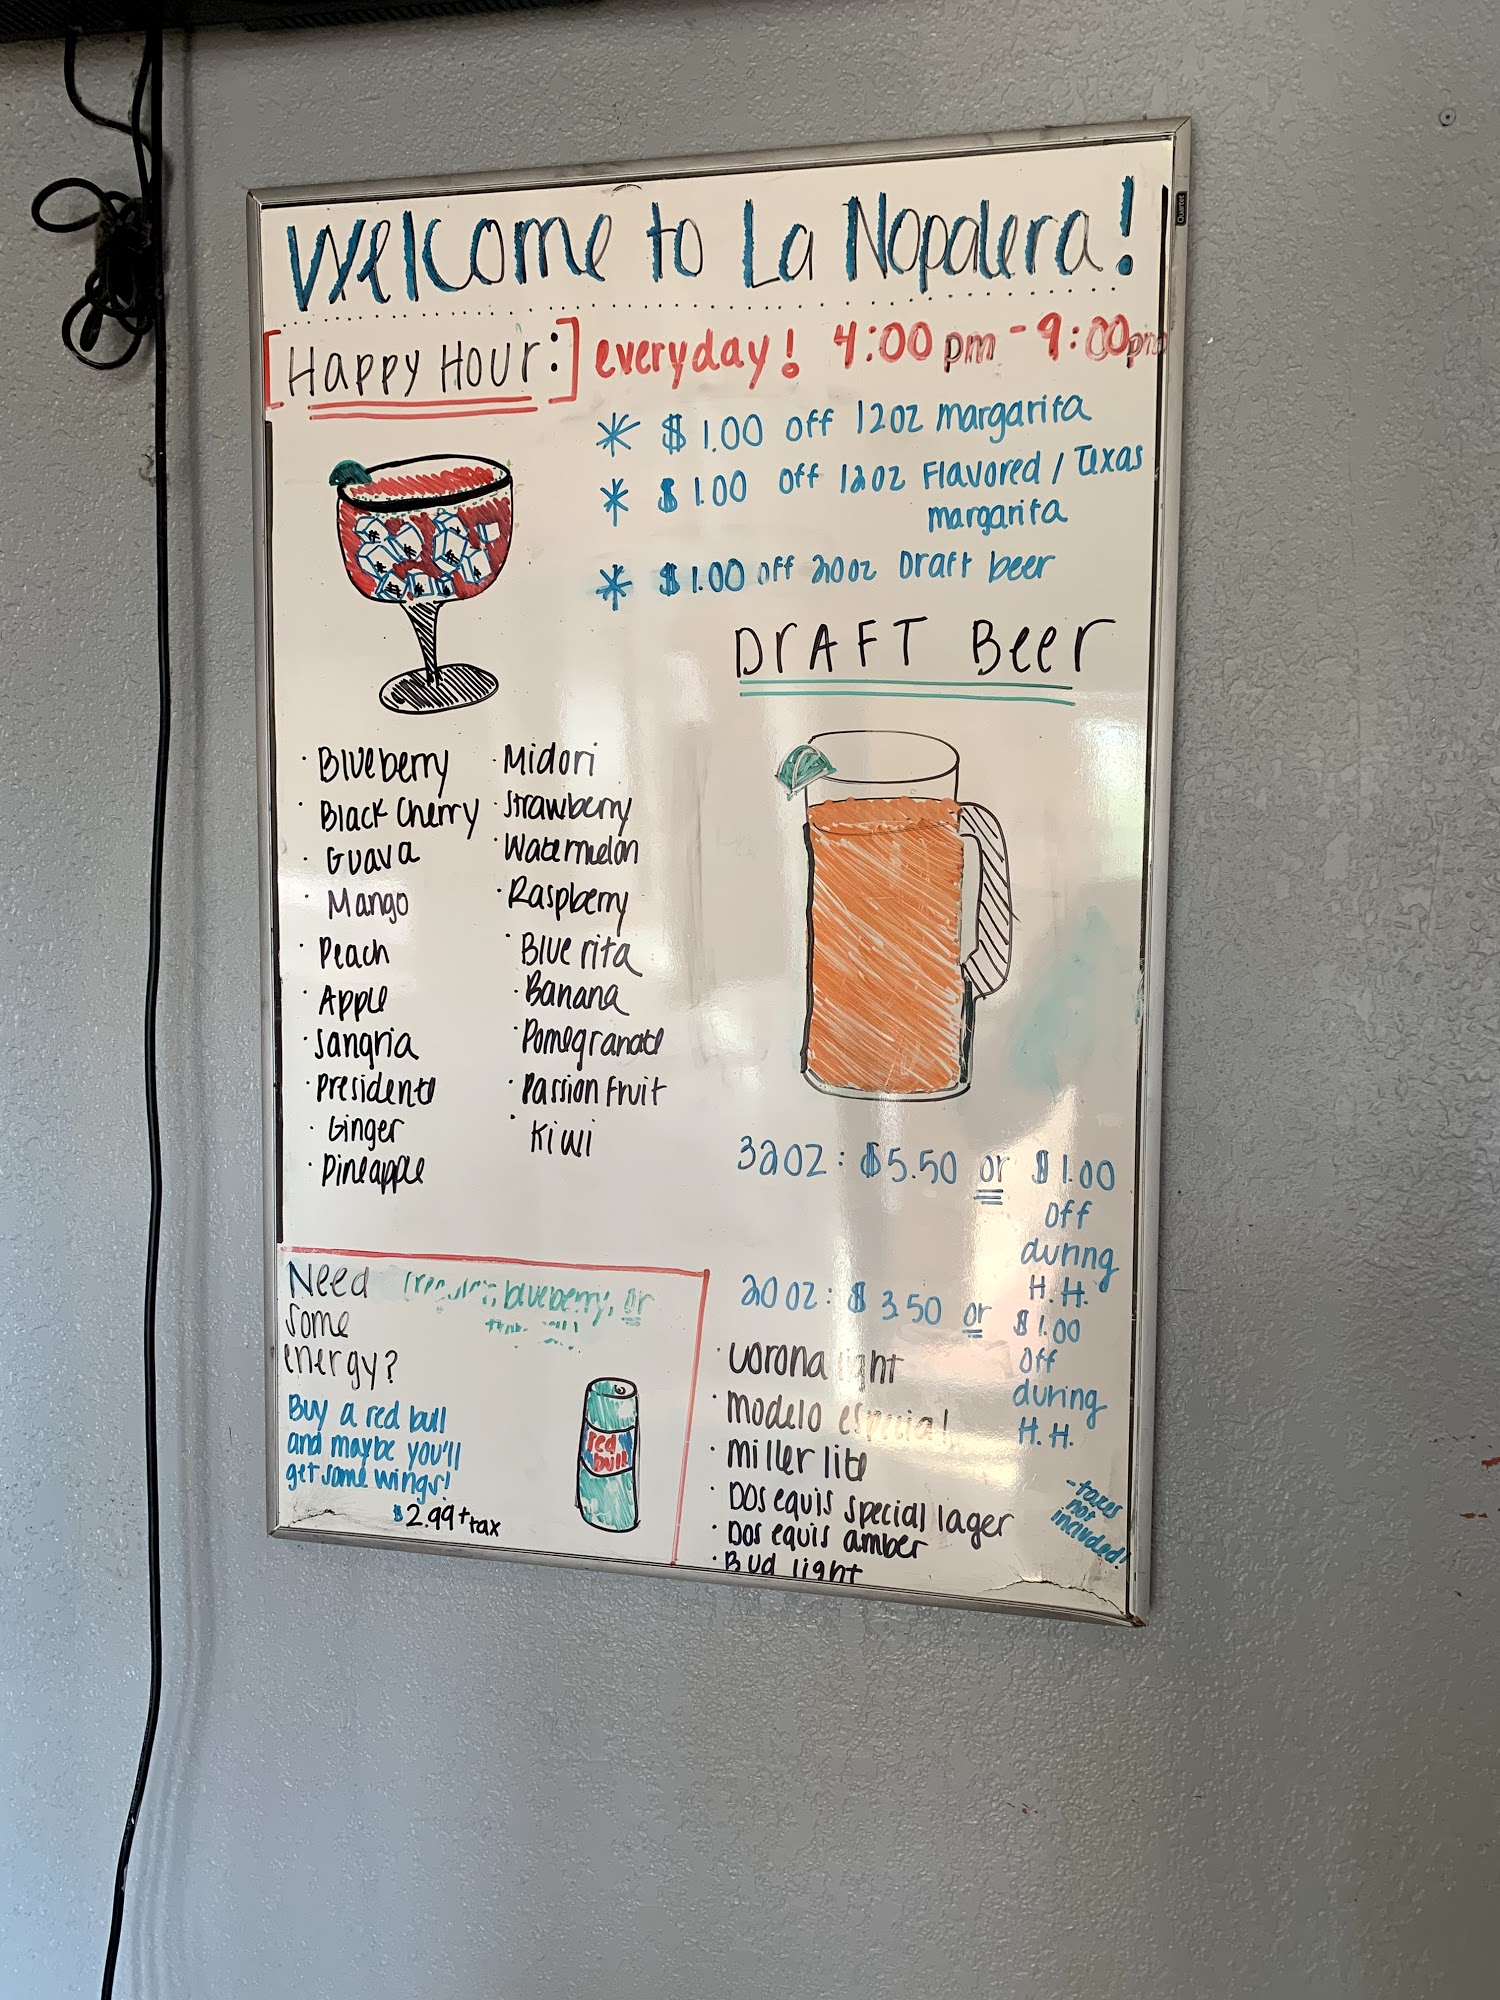 Welcome to La Nopalera!
[Happy Hour:] everyday! 4:00 pm - 9:00pm
* $1.00 off 12oz margarita
* $1.00 off 12oz Flavored / Texas
margarita
* $1.00 off 20oz Draft beer
DrAFT Beer
· Blueberry
· Black Cherry
· Guava
· Mango
· Peach
· Apple
· Sangria
· Presidente
· Ginger
· Pineapple
· Midori
· Strawberry
· Watermelon
· Raspberry
· Blue rita
· Banana
· Pomegranate
· Passion Fruit
· Kiwi
32oz: $5.50 or $1.00
off
during
H.H.
20oz: $3.50 or $1.00
off
during
H.H.
· Corona light
· Modelo especial
· Miller lite
· Dos equis special lager
· Dos equis amber
· Bud light
-taxes
not
included!
Need
some
energy?
blueberry, or
Buy a red bull
and maybe you'll
get some wings!
$2.99 + tax
red
bull
Quartet